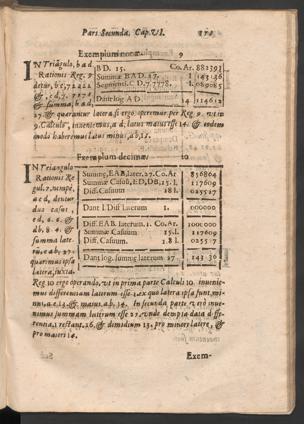 Pars Secunda. Cap. VI.
Exemplum nonæ. 9
IN Triangulo, b a d,
Rationis Reg. 9
detur, b c, 72222
& c d, 7. 7778
& summa, b a d,
B D. 15. Co. Ar. 882391
Summæ B A D. 27. 1 143136
Segment. C D. 7.7778.
Diff. log A D 14 1114612
27. & quæratur latera, si ergo operemur per Reg. 9. ut in
9. Calculo, inveniemus, a d, latus maius esse 14. & eodem
modo habebimus latus minus, a b, 13.
Exemplum decimæ. 10
IN Triangulo
Rationis Re
gul. 7. nempe,
a c d, dentur
duo casus,
c d, 9. 6. &
d b, 8. 4. &
summa late-
rum, c a b, 27.
quærimus ipsa
latera, juxta
Summ, EAB, later, 27. Co. Ar. 856864
Summæ Casuũ, E D, D B, 15. 1. 117609
Diff. Casuum 18 1. 025527
Dant l Diff laterum 1. 000000
Diff. EAB. laterum. 1. Co. Ar. 1000000
Summæ Casuum 15. 1. 117609
Diff. Casuum. 1.8 1. 025527
Dant log. summæ laterum 27 143136
Reg 10 ergo operando, ut in prima parte Calculi 10. invenie-
mus differentiam laterum esse 1. ex quo latera ipsa sunt, mi-
nus, a e, 13. & maius, a b, 14. In secunda parte verò inve-
nimus summam lateruum esse 27. unde dempta data diffe-
rentia, 1 restant, 26, & dimidium 13. pro minori latere, &
pro maiori 14.
Exem-